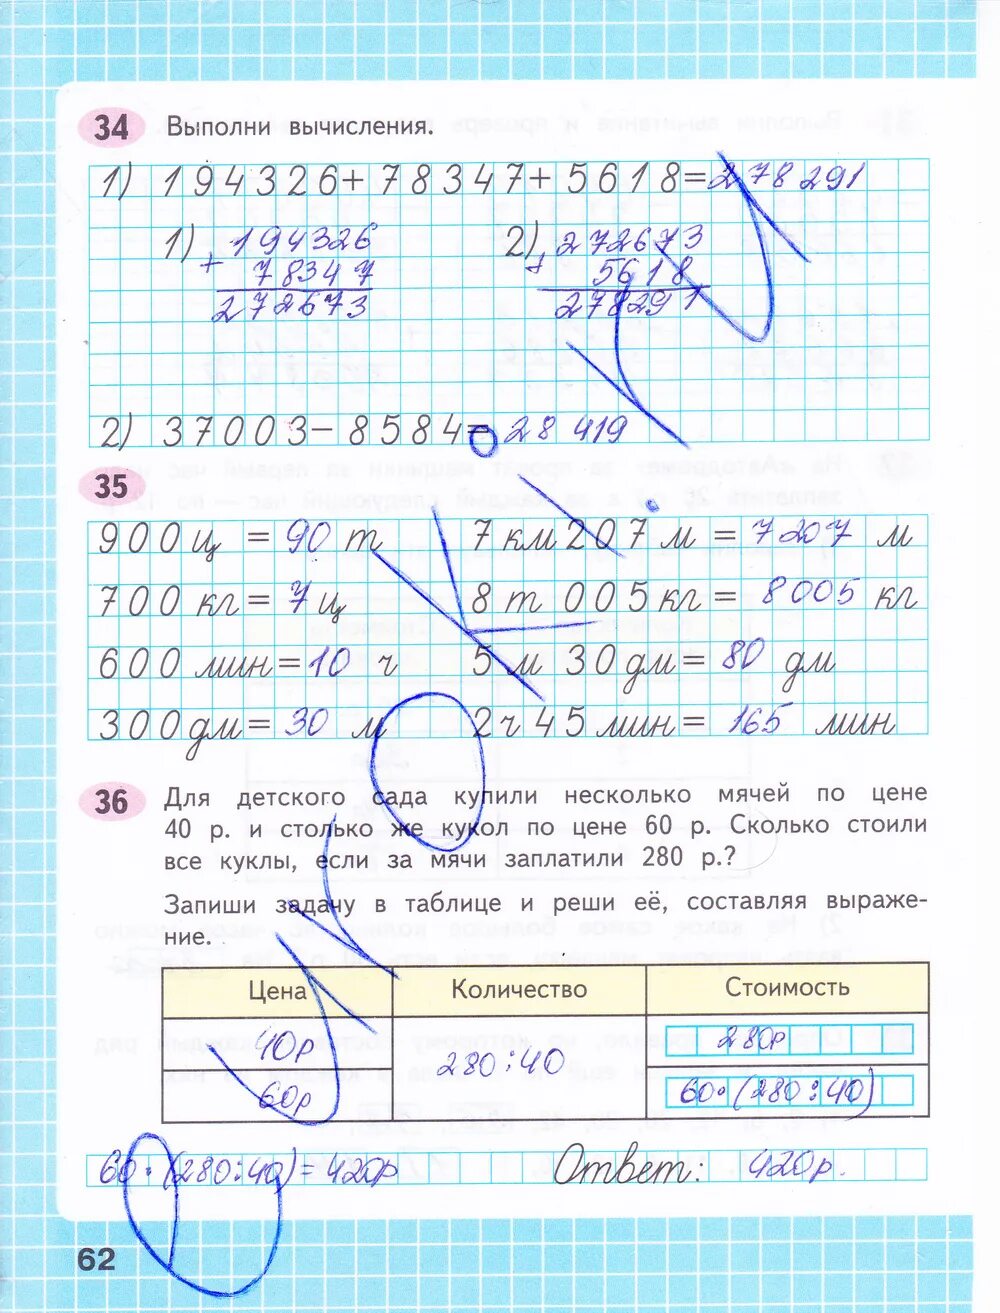 34 Выполни вычисления.
1) 194326+78347+5618=278291
1) 194326 2) 272673
+ 78347 + 5618
272673 278291
2) 37003-8584=28419
35
900 ц = 90 т 7 км 207 м = 7207 м
700 кг = 7 ц 8 т 005 кг = 8005 кг
600 мин = 10 ч 5 м 30 дм = 80 дм
300 дм = 30 м 2 ч 45 мин = 165 мин
36 Для детского сада купили несколько мячей по цене
40 р. и столько же кукол по цене 60 р. Сколько стоили
все куклы, если за мячи заплатили 280 р.?
Запиши задачу в таблице и реши её, составляя выраже-
ние.
Цена Количество Стоимость
40р 280:40 280р
60р 60·(280:40)
60·(280:40)=420р Ответ: 420р.
62